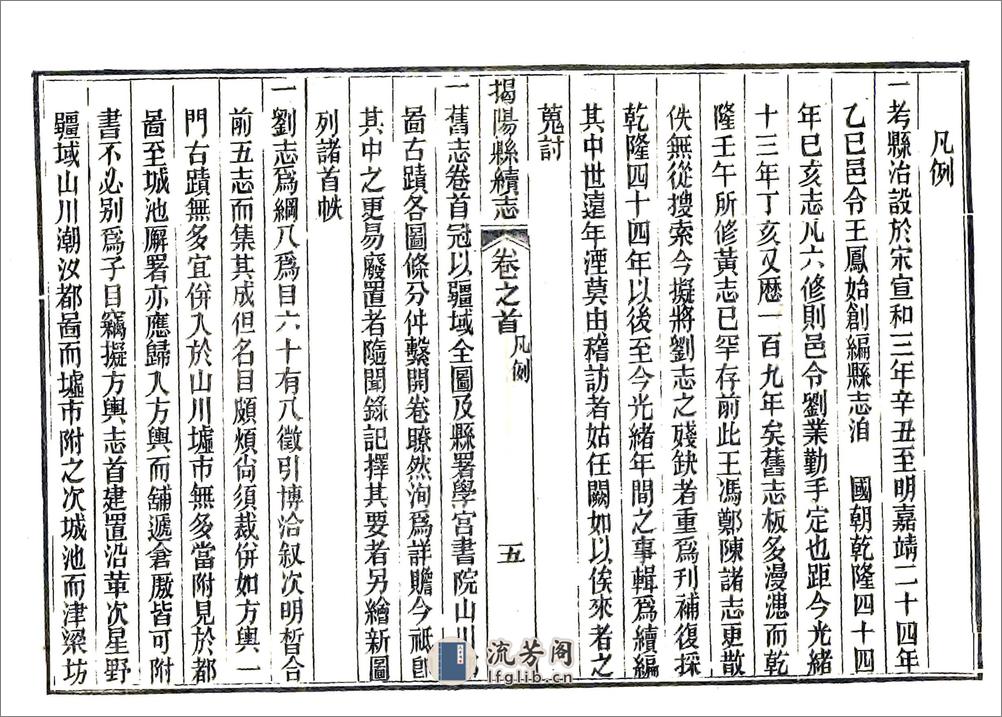 凡例
一考縣治設於宋宣和三年辛丑至明嘉靖二十四年
乙巳邑令王鳳始創編縣志洎 國朝乾隆四十四
年巳亥志凡六修則邑令劉業勤手定也距今光緒
十三年丁亥又歷一百九年矣舊志板多漫漶而乾
隆壬午所修黃志已罕存前此王馮鄭陳諸志更散
佚無從搜索今擬將劉志之殘缺者重爲刊補復採
乾隆四十四年以後至今光緒年間之事輯爲續編
其中世遠年湮莫由稽訪者姑任闕如以俟來者之
蒐討
揭陽縣續志 卷之首 凡例 五
一舊志卷首冠以疆域全圖及縣署學宮書院山川
啚古蹟各圖條分件繫開卷瞭然洵爲詳贍今祗卽
其中之更易廢置者隨聞錄記擇其要者另繪新圖
列諸首帙
一劉志爲綱八爲目六十有八徵引博洽叙次明晳合
前五志而集其成但名目頗煩尙須裁併如方輿一
門古蹟無多宜併入於山川墟市無多當附見於都
啚至城池廨署亦應歸入方輿而舖遞倉廒皆可附
書不必别爲子目竊擬方輿志首建置沿革次星野
疆域山川潮汐都啚而墟市附之次城池而津梁坊
流芳阁
lfglib.cn